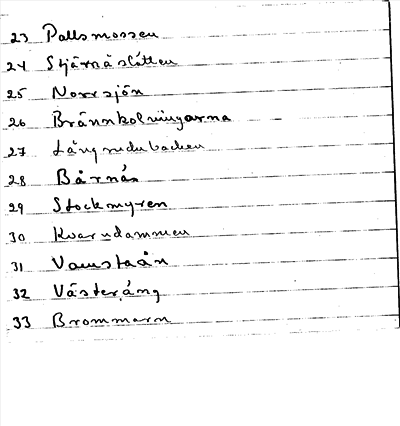 23 Pallsmossen
24 Stjärnäslätten
25 Norrsjön
26 Brännkolningarna
27 Långrudubacken
28 Bårnån
29 Stockmyren
30 Kvarndammen
31 Vamstaån
32 Västeräng
33 Brommarn